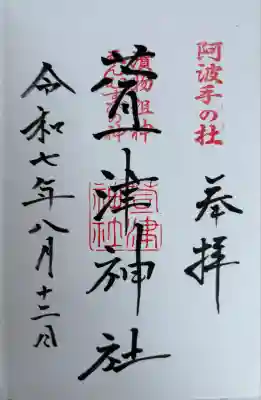 阿波手の杜
奉拝
漬物祖神
萱津神社
萱津神社
令和七年八月十二日